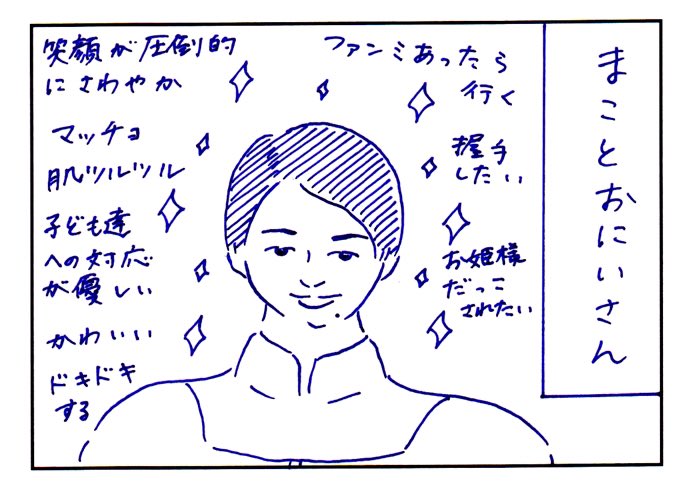 まことおにいさん
ファンミあったら
行く
握手
したい
お姫様
だっこ
されたい
笑顔が圧倒的
にさわやか
マッチョ
肌ツルツル
子ども達
への対応
が優しい
かわいい
ドキドキ
する